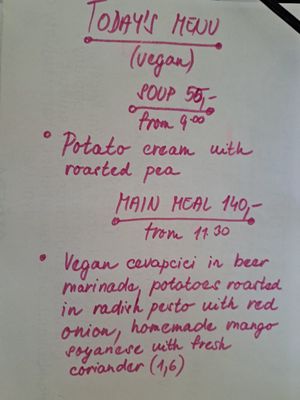 TODAY'S MENU
(vegan)
SOUP 55,-
from 9:00
• Potato cream with
roasted pea
MAIN MEAL 140,-
from 11:30
• Vegan cevapcici in beer
marinade, potatoes roasted
in radish pesto with red
onion, homemade mango
soyanese with fresh
coriander (1,6)